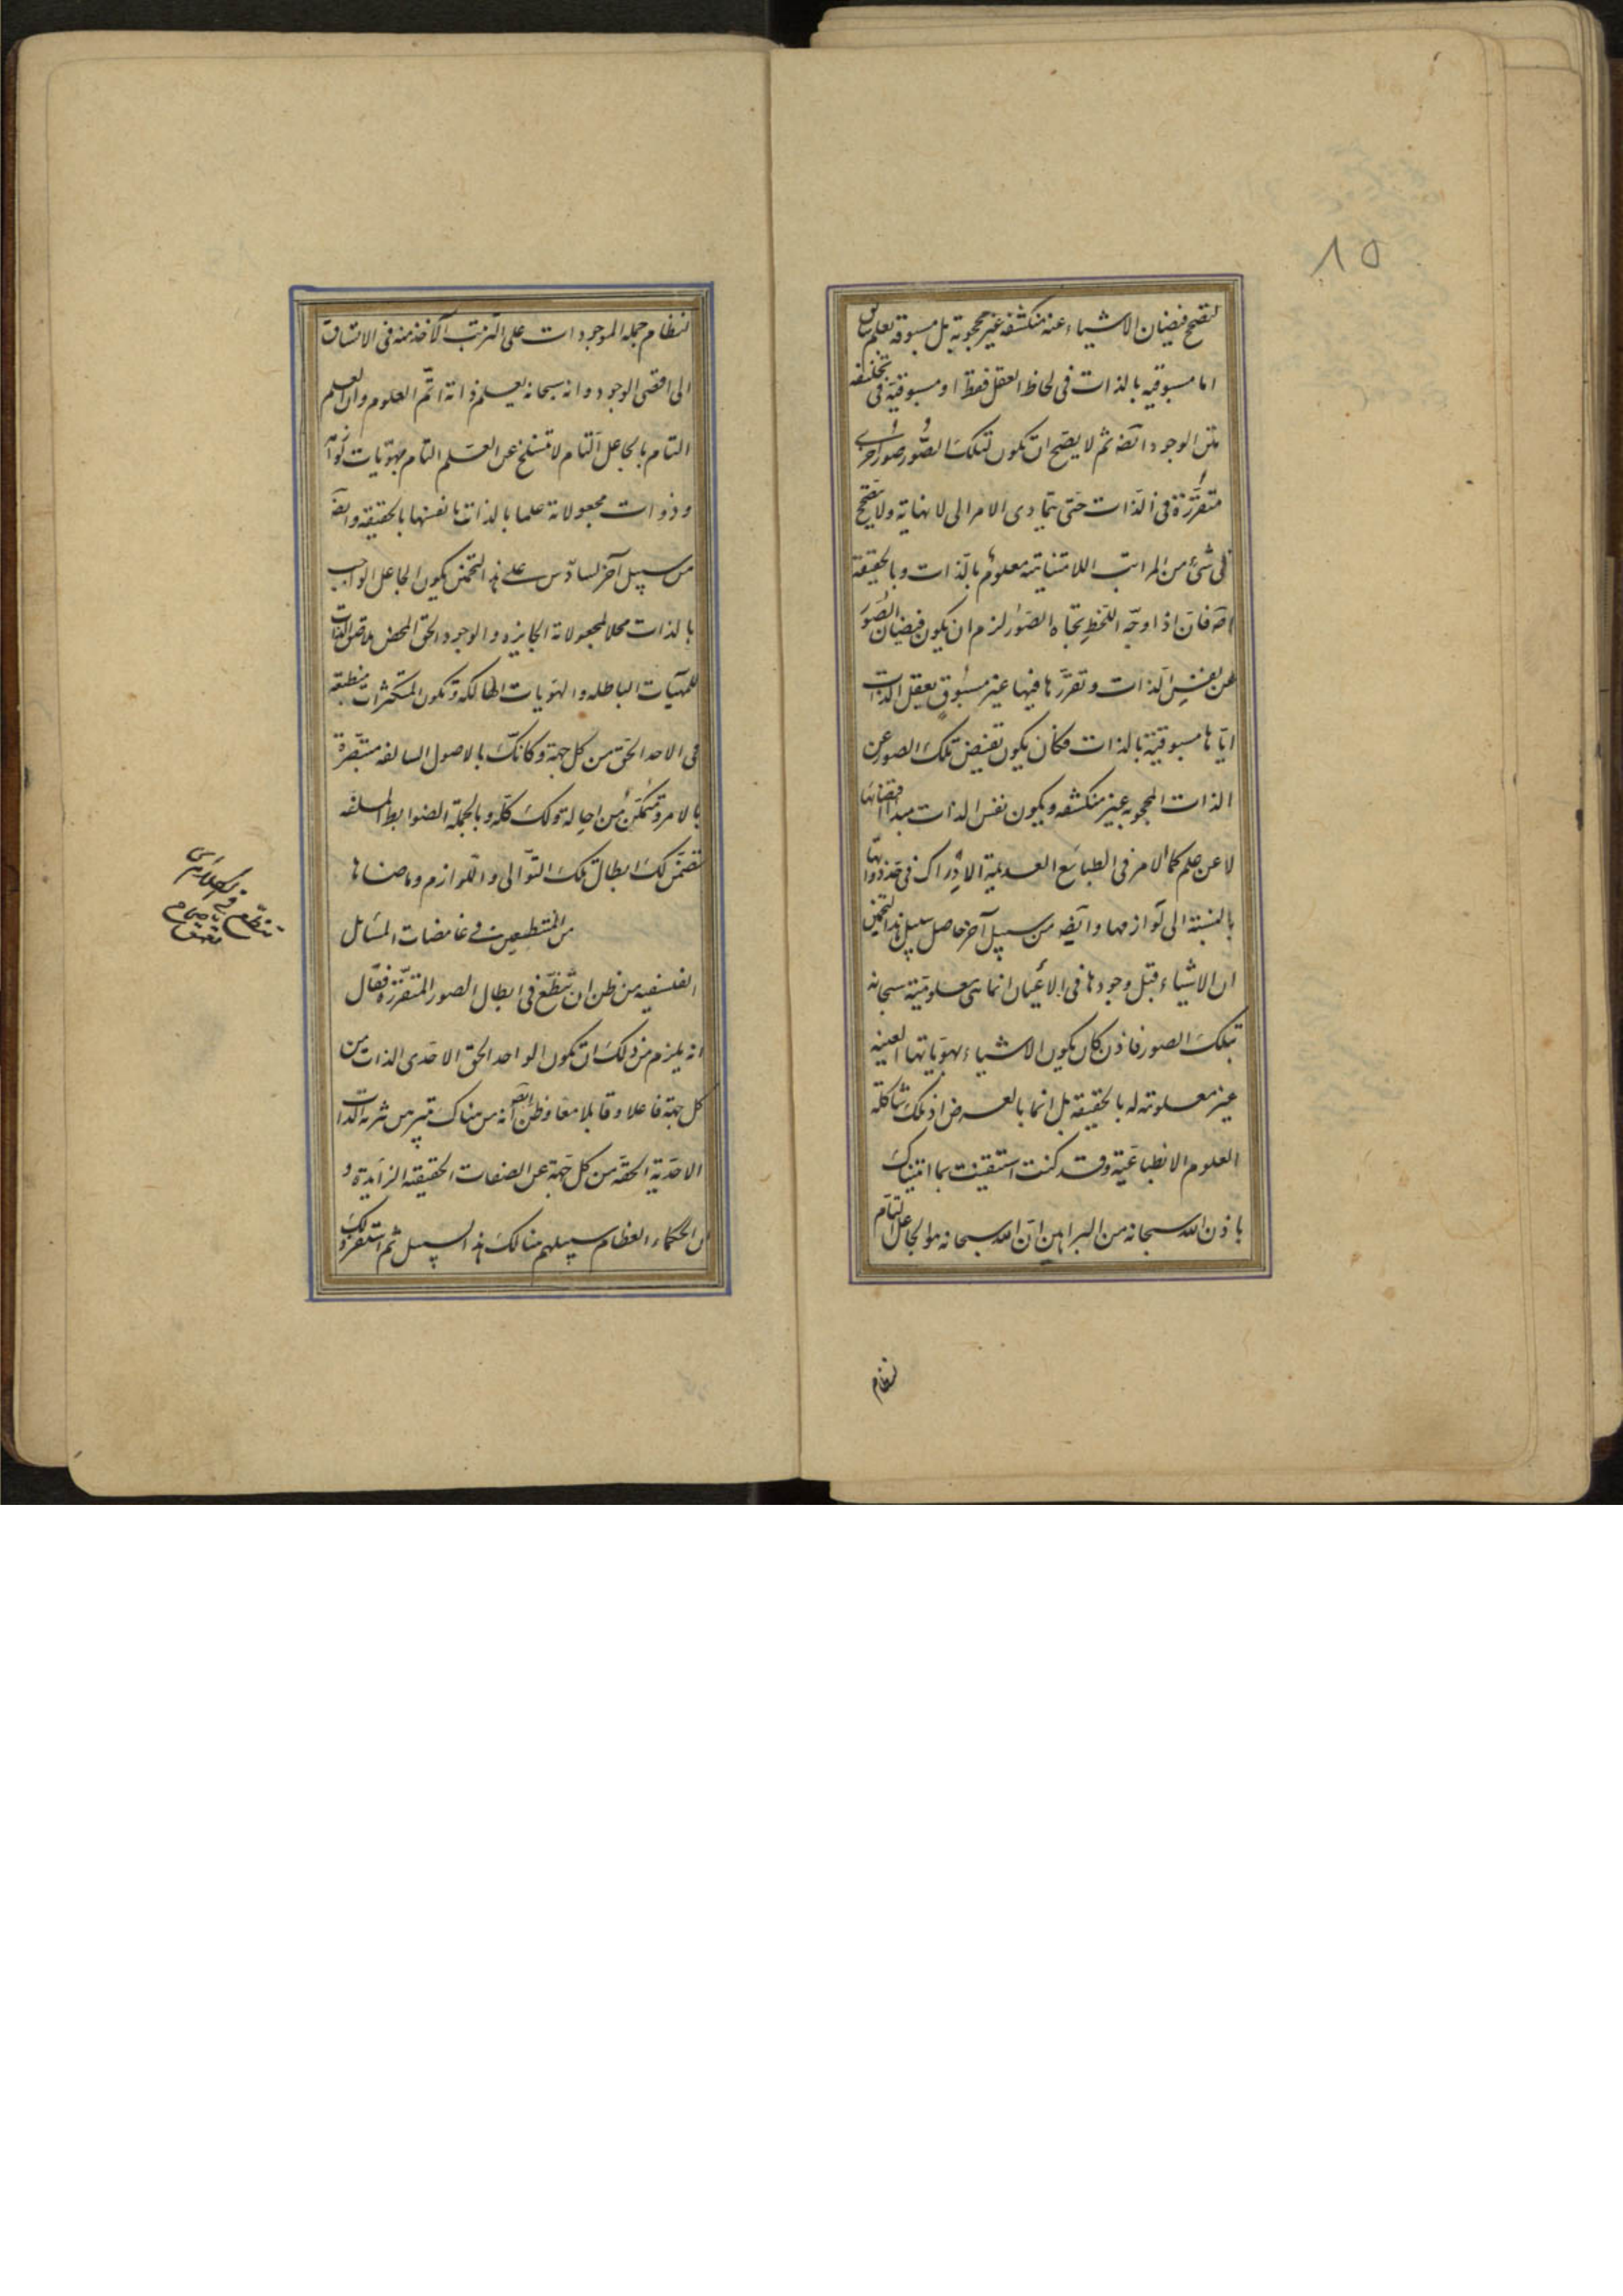 ١٥
لتصح فيضان الاشياء عنه منكشفة غير محجوبة بل مسبوقة بعلم سابق
اما مسبوقية بالذات فى لحاظ العقل فقط او مسبوقية فى
متن الوجود ايضه ثم لا يصح ان تكون لتلك الصور صور اخرى
متقررة فى الذات حتى يتمادى الامر الى لا نهاية ولا يتصحح
فى شئ من المراتب اللامتناهية معلوم بالذات وبالحقيقة
فان اذا وجه اللحظ تجاه الصور لزم ان يكون فيضان الصور
عن نفس الذات وتقررها فيها غير مسبوق بعقل الذات
اياها مسبوقية بالذات فكان يكون تفيض تلك الصور عن
الذات المحجوبة غير منكشفة ويكون نفس الذات مبدأ فيضانها
لا عن علم كما الامر فى الطبائع العديمة الادراك فى حد ذواتها
بالنسبة الى لوازمها وايضه من سبيل آخر حاصل سبيل هذا التخمين
ان الاشياء قبل وجودها فى الاعيان انما هى معلوميته سبحانه
بتلك الصور فاذن كان يكون الاشياء بهوياتها العينية
غير معلومة له بالحقيقة بل انما بالعرض اذ تلك شاكلة
العلوم الانطباعية وقد كنت استيقنت بما اتيناك
باذن الله سبحانه من البراهين ان الله سبحانه هو الجاعل التام
لنظام
لنظام جملة الموجودات على الترتب الآخذ منه فى الاتساق
الى اقصى الوجود وانه سبحانه يعلم ذاته اتم العلوم وان العلم
التام بالجاعل التام لا تنسلخ عن العلم التام بهويات
وذوات مجعولاته علما بالذات بانفسها بالحقيقة وايضه
من سبيل آخر لسادس على هذا التخمين يكون الجاعل الواجب
بالذات محلا لمجعولاته الجايزه والوجود الحق المحض
للمهيات الباطله والهويات الهالكه وتكون المتكثرات منطبعة
فى الاحد الحق من كل جهة وكانك بالاصول السالفه متبصرة
بالامر متمكن من احالة ذلك كله وبالجملة الضوابط المسلفه
تضمن لك ابطال تلك التوالى واللوازم وما ضاهاها
من المتطبعين فى غامضات المسائل
الفلسفيه من ظن ان يتنطع فى ابطال الصور المتقررة فقال
انه يلزم من ذلك ان تكون الواحد الحق الاحدى الذات من
كل جهة فاعلا وقابلا معا وظن ايضه انه من هناك
الاحدية الحقه من كل جهة عن الصفات الحقيقية الزايدة و
ان الحكماء العظام سبيلهم هنالك هذا السبيل ثم
تنطع فى الكلام اى
تعمق